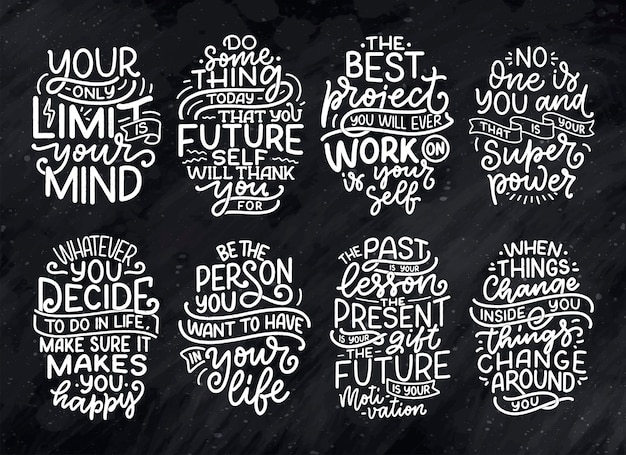 YOUR
ONLY
LIMIT IS
your
MIND
DO
some
THING
TODAY
THAT YOU
FUTURE
SELF
WILL THANK
you
FOR
THE
BEST
project
YOU WILL EVER
WORK ON
is your
self
NO
One is
YOU and
THAT IS YOUR
Super
power
WHATEVER
YOU
DECIDE
TO DO IN LIFE,
MAKE SURE IT
MAKES
YOU
happy
BE THE
PERSON
YOU
WANT TO HAVE
IN your
life
THE PAST
IS YOUR
lesson
THE
PRESENT
IS YOUR gift
THE
FUTURE
IS YOUR
Moti-
vation
WHEN
THINGS
Change
INSIDE YOU
things
CHANGE
AROUND
YOU